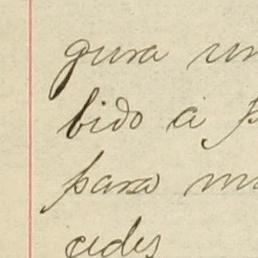 gura un
bido a p
para m
cedes